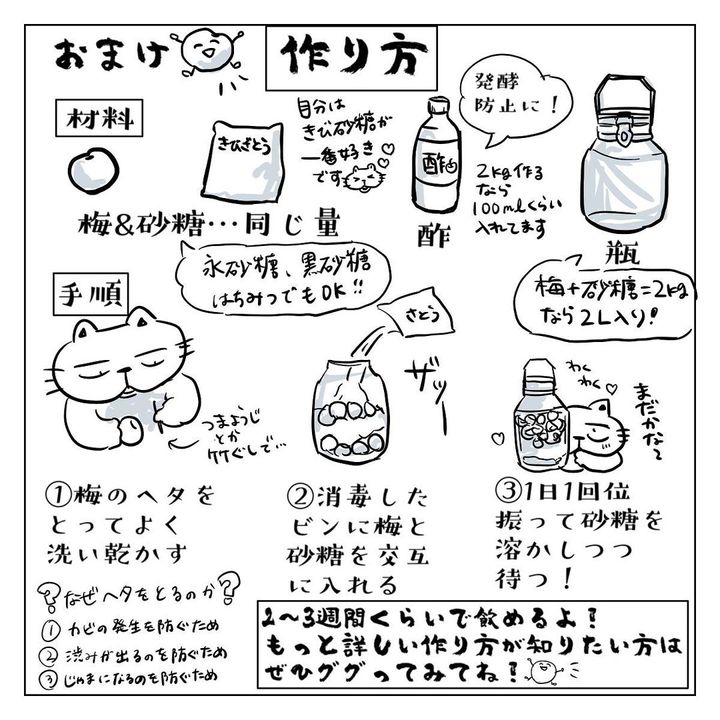 おまけ
作り方
材料
きびざとう
自分は
きび砂糖が
一番好き
です
酢
発酵
防止に!
2kg作る
なら
100mlくらい
入れてます
梅&砂糖…同じ量
酢
瓶
氷砂糖、黒砂糖
はちみつでもOK!!
梅+砂糖=2kg
なら2L入り!
手順
つまようじ
とか
竹ぐしで…
さとう
ザッー
わく
わく
まだかな〜
①梅のヘタを
とってよく
洗い乾かす
②消毒した
ビンに梅と
砂糖を交互
に入れる
③1日1回位
振って砂糖を
溶かしつつ
待つ!
?なぜヘタをとるのか?
① カビの発生を防ぐため
② 渋みが出るのを防ぐため
③ じゃまになるのを防ぐため
2〜3週間くらいで飲めるよ!
もっと詳しい作り方が知りたい方は
ぜひググってみてね!